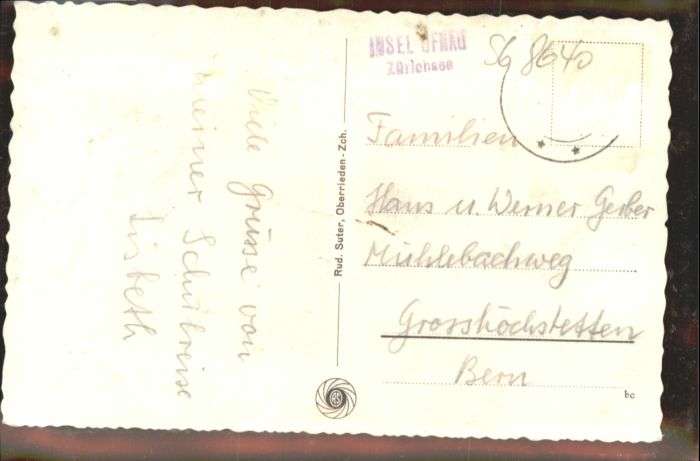 Viele Grüsse von
meiner Schulreise
Lisbeth
Rud. Suter, Oberrieden-Zch.
INSEL UFNAU
Zürichsee
SG 8640
Familien
Hans u. Werner Gerber
Mühlebachweg
Grosshöchstetten
Bern
bc